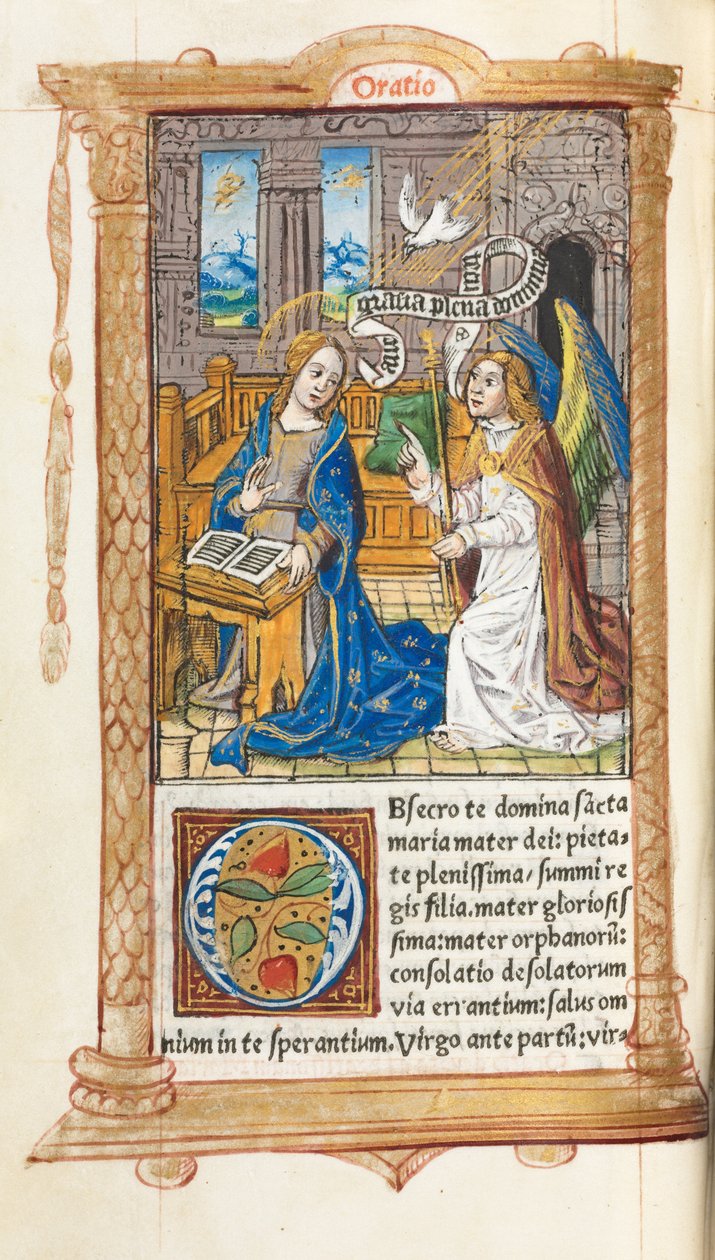 Oratio
aue gratia plena dominus tecū
OBsecro te domina sācta
maria mater dei: pieta-
te plenissima/ summi re
gis filia. mater gloriosis
sima: mater orphanorū:
consolatio desolatorum
via errantium: salus om
nium in te sperantium. Virgo ante partū: vir-